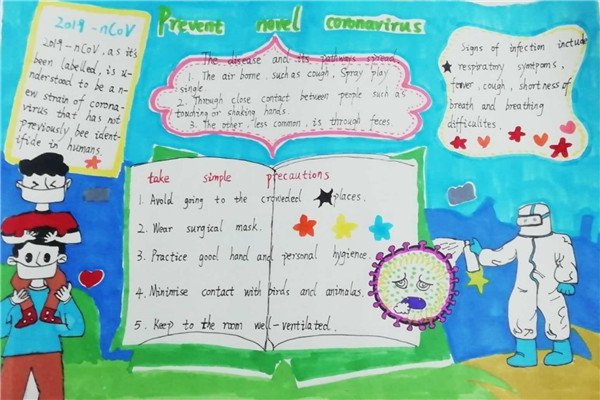 Prevent novel coronavirus
2019-nCoV
2019-nCoV, as it's
been labelled, is u-
nderstood to be a n-
ew strain of corona-
virus that has not
previously bee ident-
ifide in humans
The disease and its pathways spread
1. The air borne, such as cough, Spray play
single
2. Through close contact between people such as
touching or shaking hands.
3. The other, less common, is through feces.
Signs of infection include
respiratory symtpoms,
fever, cough, shortness of
breath and breathing
difficulites.
take simple precautions
1. Avold going to the croweded places.
2. Wear surgical mask.
3. Practice good hand and personal hygience.
4. Minimise contact with birds and animalas.
5. Keep to the room well-ventilated.